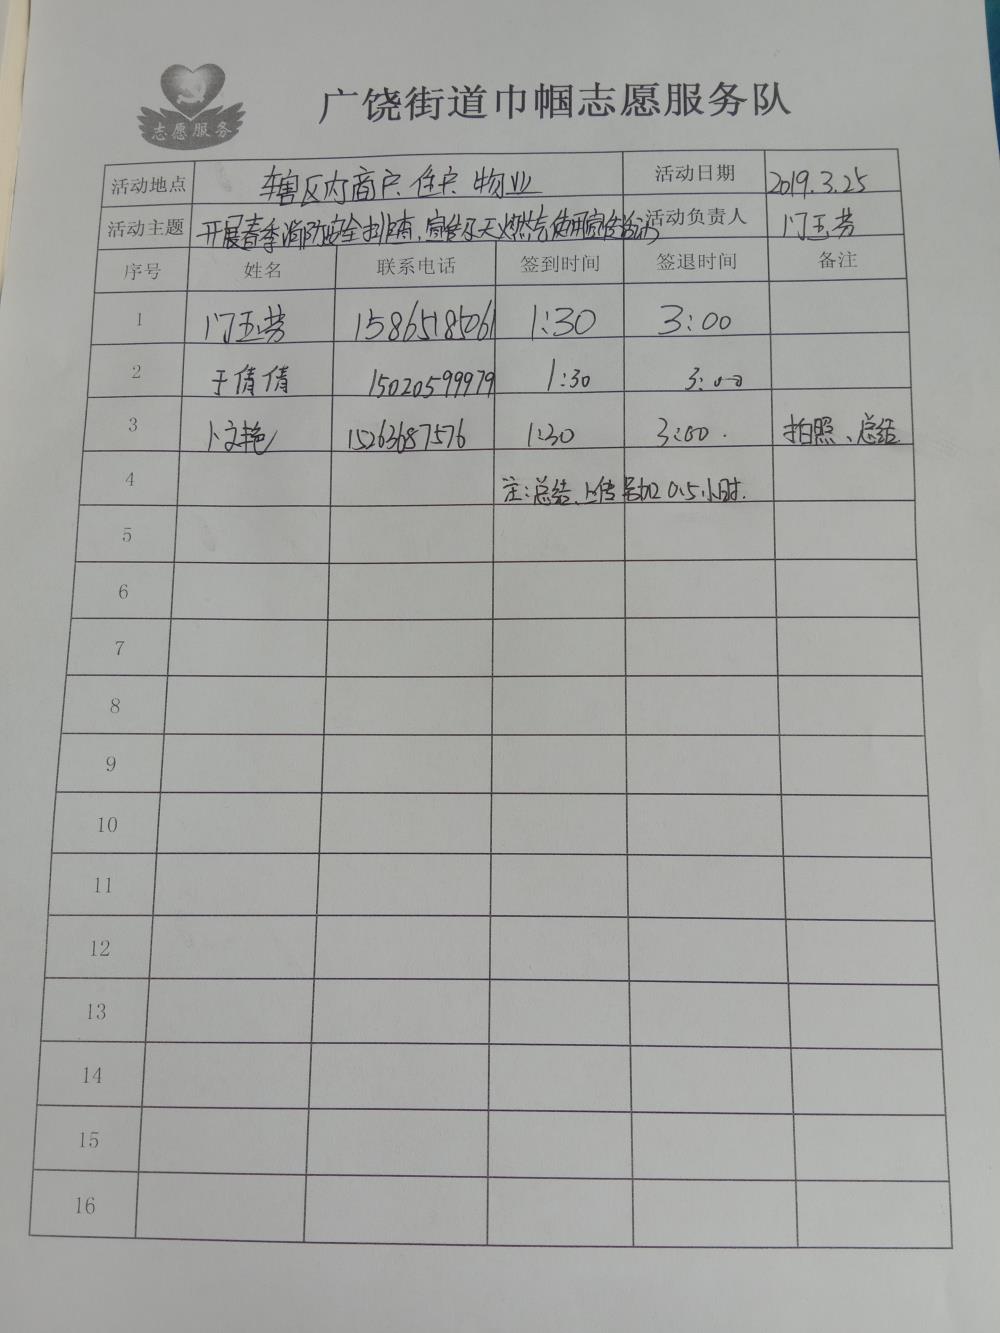 志愿服务
广饶街道巾帼志愿服务队
活动地点 辖区内商户、住户、物业 活动日期 2019.3.25
活动主题 开展春季消防安全排查、宣传及天然气使用宣传 活动负责人 门玉芬
序号 姓名 联系电话 签到时间 签退时间 备注
1 门玉芬 15865185061 1:30 3:00
2 于倩倩 15020599979 1:30 3:00
3 卜文艳 15263687576 1:30 3:00. 拍照、总结
4 注:总结、上传 加0.5小时.
5
6
7
8
9
10
11
12
13
14
15
16